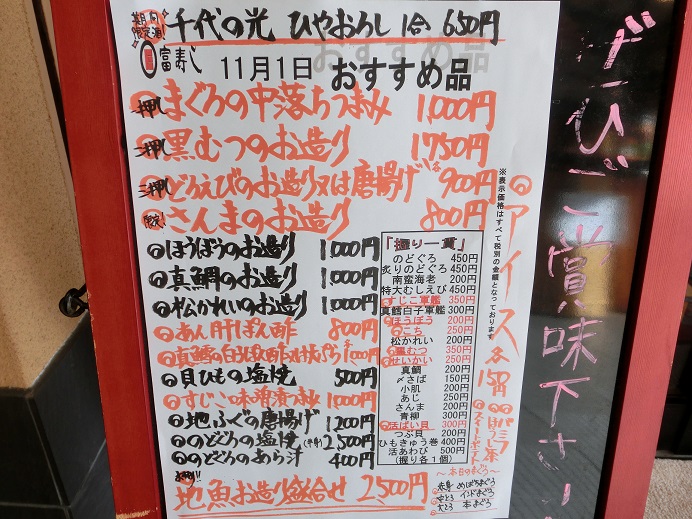 期間限定 日本酒
千代の光 ひやおろし 1合 650円
富寿し
11月1日 おすすめ品
一押し まぐろの中落ちつまみ 1,000円
二押し 黒むつのお造り 1750円
三押し どろえびのお造り又は唐揚げ 900円
限定 さんまのお造り 800円
ほうぼうのお造り 1,000円
真鯛のお造り 1,000円
松かれいのお造り 1,000円
あん肝ぽん酢 800円
貝ひもの塩焼 500円
すじこ味噌漬つまみ 1000円
地ふぐの唐揚げ 1200円
のどぐろの塩焼 (半身) 2,500円
のどぐろのあら汁 400円
地魚お造り盛合せ 2500円
「握り一貫」
のどぐろ 450円
炙りのどぐろ 450円
南蛮海老 200円
特大むしえび 450円
すじこ軍艦 350円
真鱈白子軍艦 300円
ほうぼう 200円
こち 250円
松かれい 200円
黒むつ 350円
せいかい 250円
真鯛 200円
〆さば 150円
小肌 200円
あじ 250円
さんま 200円
青柳 300円
活ばい貝 200円
つぶ貝 200円
ひもきゅう巻 400円
活あわび 500円
(握り各1個)
〜本日のまぐろ〜
赤身 めばちまぐろ
中とろ インドまぐろ
大とろ 本まぐろ
※表示価格はすべて税別の金額となっております
アイス 各150円
スイートポテト
ぜひご賞味下さい